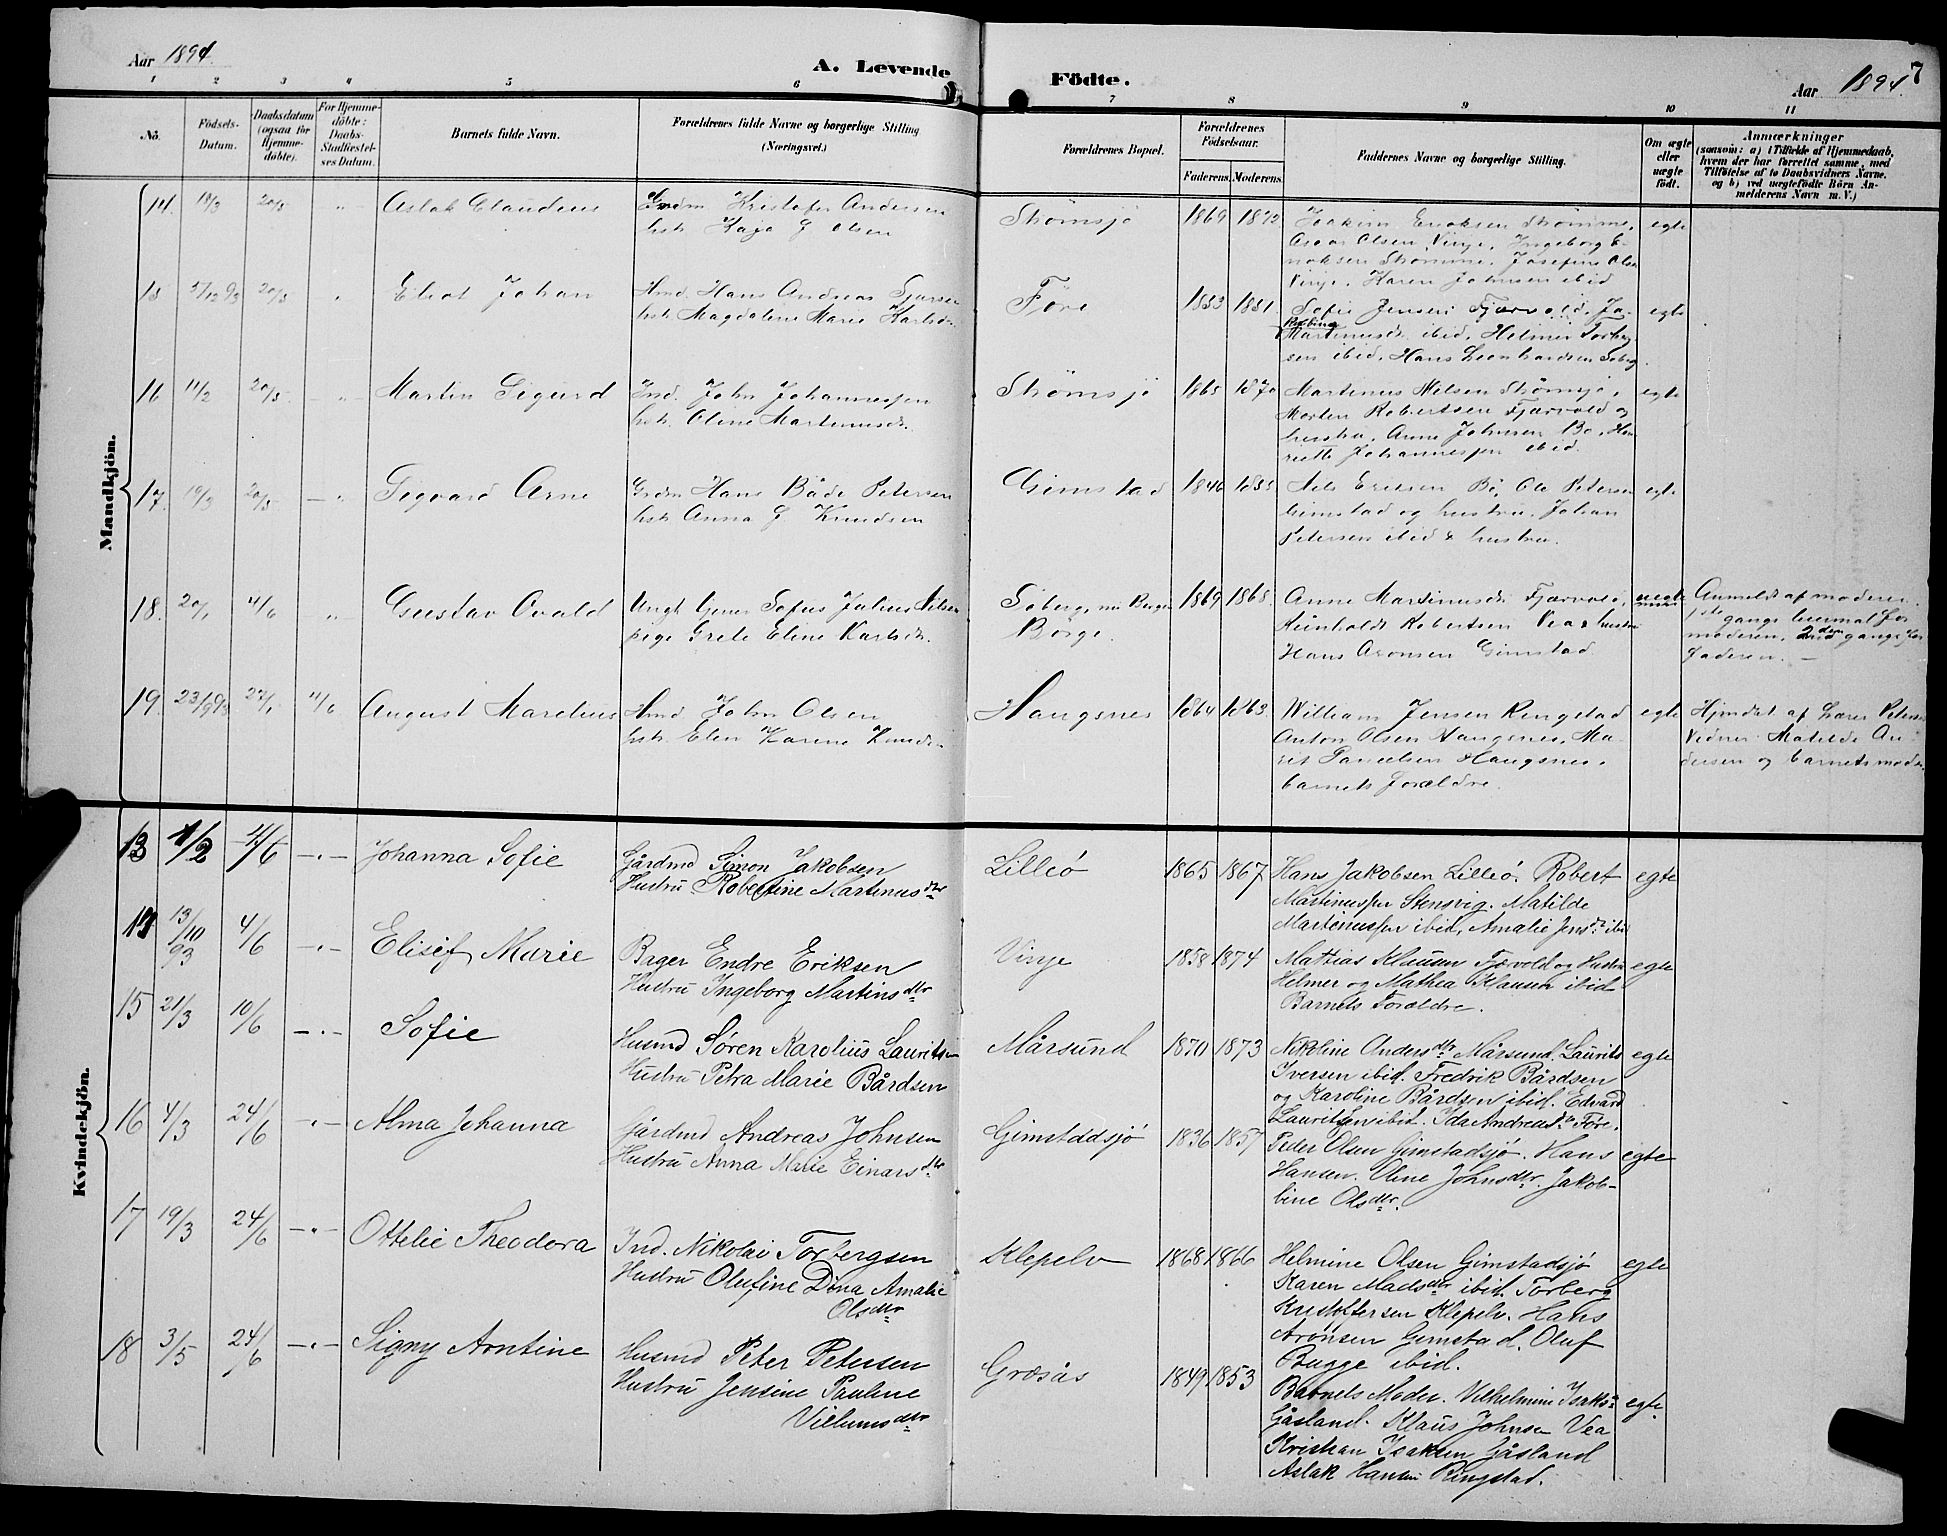 Aar 1894.
A. Levende Födte.
Aar 1894. 7
1 2 3 4 5 6 7 8 9 10 11
No.
Födsels-Datum.
Daabsdatum (ogsaa for Hjemme-döbte).
For Hjemme-döbte: Daabs-Stadfæstel-ses Datum.
Barnets fulde Navn.
Forældrenes fulde Navne og borgerlige Stilling (Næringsvei.)
Forældrenes Bopæl.
Forældrenes Födselsaar.
Faderens. Moderens.
Faddernes Navne og borgerlige Stilling.
Om ægte eller uægte födt.
Anmærkninger
(saasom: a) i Tilfælde af Hjemmedaab,
hvem der har forrettet samme, med
Tilföielse af to Daabsvidners Navne,
og b) ved uægtefödte Börn An-
melderens Navn m. V.)
Mandkjön.
14. 18/3 20/5 " Aslak Claudius
Grdm Kristofer Andersen
hstr. Kaja G Olsen
Strömsjö 1869 1872
Joakim Eriksen Strömme,
Oscar Olsen Vinje, Ingeborg E-
noksen Strömme, Josefine Olsen
Vinje, Karen Johnsen ibid
egte
15 5/12 93 20/5 " Eliot Johan
Hmd. Hans Andreas
hstr. Magdalena Marie Karlsdr.
Före 1853 1851.
Sofie Jensen Fjærvold, Ja-
kobine
Martinusdr ibid, Helmer Torberg
sen ibid, Hans Leonhardsen Söberg
egte
16 11/2 20/5 " Martin Sigurd
Ind. John Johannessen
hstr. Oline Martinusdr.
Strömsjö 1865 1870
Martinus Nilsen Strömsjö,
Morten Robertsen Fjærvold og
hustru, Anne Johnsen Bö, Hen
riette Johannessen ibid.
egte
17. 19/3 20/5 — " Sigvard Arne
Grdm Hans Både Petersen
hstr. Anna G Knudsen
Gimstad 1846 1855
Nils Eriksen Bö, Ole Petersen
Gimstad og hustru. Johan
Petersen ibid & hustru.
egte
18. 20/1 4/6 " Gustav Ovald
Ungk. Sofus Julius Nilsen
pige Grete Eline Karlsdr.
Söberg, nu Berger
Börge.
1869 1868.
Anne Martinusdr Fjærvold,
Reinholdt Robertsen Vea & hustru
Hans Aronsen Gimstad
uegte
Anmeldt af moderen.
1ste gangs leiermaal for
moderen, 2den gangs for
faderen. —
19. 23/9 93 27/1 4/6 August Marelius
Hmd John Olsen
hstr. Elen Karine Knudsdr.
Haugsnes 1864 1863
William Jensen Ringstad
Anton Olsen Haugsnes, Ma-
rit Danielsen Haugsnes.
barnets forældre.
egte
Hjmdöbt af Lærer Petersen
Vidner Matilde An-
dersen og barnets moder.
Kvindekjön.
13 1/2 4/6 — " — Johanna Sofie
Gårdmd Simon Jakobsen
Hustru Robertine Martinusdtr
Lilleö 1865 1867
Hans Jakobsen Lilleö. Robert
Martinussen Stensvig. Matilde
Martinussen ibid, Amalie Jensdr. ibid
egte
14 13/10 93 4/6 — " — Elisef Marie
Bager Endre Eriksen
Hustru Ingeborg Martinsdtr
Vinje 1858 1874
Mathias Klausen Fjærvold og Hustru
Helmer og Mathea Klausen ibid
Barnets Forældre.
egte
15 21/3 10/6 — " — Sofie
Husmd Sören Karolius Lauritsen
Hustru Petra Marie Bårdsen
Mårsund 1870 1873
Nikoline Andersdtr Mårsund. Laurits
Iversen ibid. Fredrik Bårdsen
og Karoline Bårdsen ibid. Edvard
Lauritsen ibid. Ida Andreasdr. Före.
egte
16 4/3 24/6 — " — Alma Johanna
Gårdmd Andreas Johnsen
Hustru Anna Marie Einarsdtr
Gimstadsjö 1836 1857
Peder Olsen Gimstadsjö. Hans
Hansen. Oline Johnsdtr. Jakob-
bine Olsdtr.
egte
17 19/3 24/6 — " — Ottelie Theodora
Ind. Nikolai Torbergsen
Hustru Olufine Dina Amalie
Olsdtr
Klepelv 1868 1866
Helmine Olsen Gimstadsjö
Karen Madsdtr ibid. Torberg
Kristoffersen Klepelv. Hans
Arönsen Gimstad. Oluf
Bugge ibid.
egte
18 3/5 24/6 — " — Signy Arntine
Husmd Peter Petersen
Hustru Jensine Pauline
Villumsdtr
Græsås 1849 1853
Barnets Moder. Vilhelmine Isaks-
Gåsland. Klaus Johnsen Vea
Kristian Isaksen Gåsland
Aslak Hansen Ringstad.
egte.